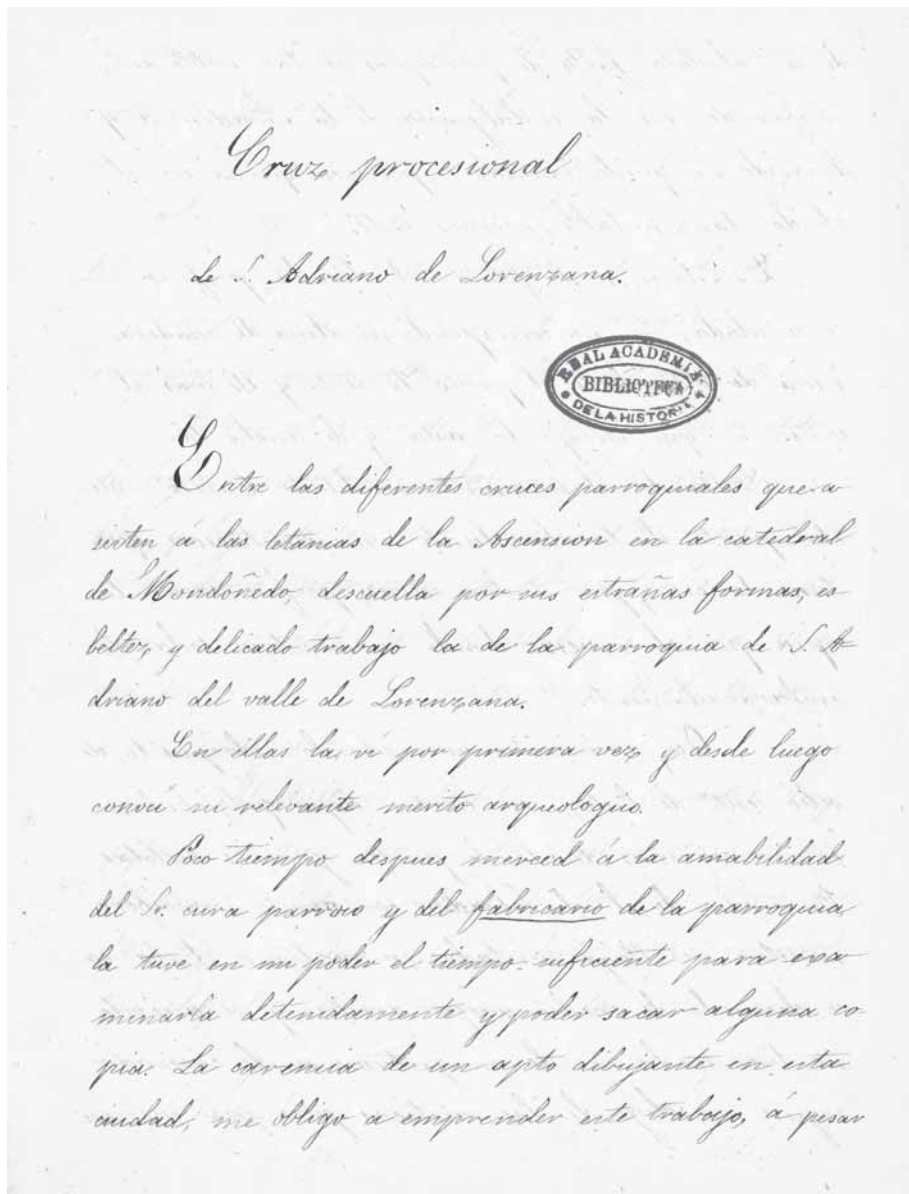 Cruz procesional
de S. Adriano de Lorenzana.
REAL ACADEMIA
BIBLIOTECA
DE LA HISTORIA
Entre las diferentes cruces parroquiales que a
sisten á las letanias de la Ascension en la catedral
de Mondoñedo, descuella por sus estrañas formas, es
beltez, y delicado trabajo la de la parroquia de S. A
driano del valle de Lorenzana.
En ellas la vi por primera vez y desde luego
conocí su relevante merito arqueologico.
Poco tiempo despues merced á la amabilidad
del Sr. cura parroco y del fabricario de la parroquia
la tuve en mi poder el tiempo suficiente para exa
minarla detenidamente y poder sacar alguna co
pia. La carencia de un apto dibujante en esta
ciudad, me obligo a emprender este trabajo, á pesar